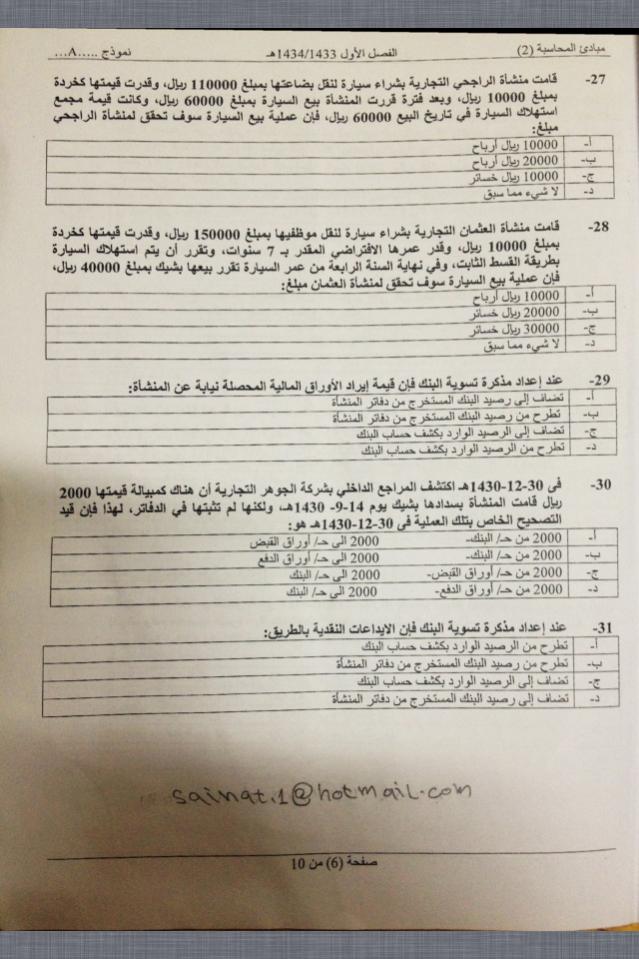 مبادئ المحاسبة (2) الفصل الأول 1434/1433هـ نموذج .....A...
27- قامت منشأة الراجحي التجارية بشراء سيارة لنقل بضاعتها بمبلغ 110000 ريال، وقدرت قيمتها كخردة
بمبلغ 10000 ريال، وبعد فترة قررت المنشأة بيع السيارة بمبلغ 60000 ريال، وكانت قيمة مجمع
استهلاك السيارة في تاريخ البيع 60000 ريال، فإن عملية بيع السيارة سوف تحقق لمنشأة الراجحي
مبلغ:
أ- 10000 ريال أرباح
ب- 20000 ريال أرباح
ج- 10000 ريال خسائر
د- لا شيء مما سبق
28- قامت منشأة العثمان التجارية بشراء سيارة لنقل موظفيها بمبلغ 150000 ريال، وقدرت قيمتها كخردة
بمبلغ 10000 ريال، وقدر عمرها الافتراضي المقدر بـ 7 سنوات، وتقرر أن يتم استهلاك السيارة
بطريقة القسط الثابت، وفي نهاية السنة الرابعة من عمر السيارة تقرر بيعها بشيك بمبلغ 40000 ريال،
فإن عملية بيع السيارة سوف تحقق لمنشأة العثمان مبلغ:
أ- 10000 ريال أرباح
ب- 20000 ريال خسائر
ج- 30000 ريال خسائر
د- لا شيء مما سبق
29- عند إعداد مذكرة تسوية البنك فإن قيمة إيراد الأوراق المالية المحصلة نيابة عن المنشأة:
أ- تضاف إلى رصيد البنك المستخرج من دفاتر المنشأة
ب- تطرح من رصيد البنك المستخرج من دفاتر المنشأة
ج- تضاف إلى الرصيد الوارد بكشف حساب البنك
د- تطرح من الرصيد الوارد بكشف حساب البنك
30- في 30-12-1430هـ اكتشف المراجع الداخلي بشركة الجوهر التجارية أن هناك كمبيالة قيمتها 2000
ريال قامت المنشأة بسدادها بشيك يوم 14-9- 1430هـ، ولكنها لم تثبتها في الدفاتر، لهذا فإن قيد
التصحيح الخاص بتلك العملية في 30-12-1430هـ هو:
أ- 2000 من حـ/ البنك- 2000 الى حـ/ أوراق القبض
ب- 2000 من حـ/ البنك- 2000 الى حـ/ أوراق الدفع
ج- 2000 من حـ/ أوراق القبض- 2000 الى حـ/ البنك
د- 2000 من حـ/ أوراق الدفع- 2000 الى حـ/ البنك
31- عند إعداد مذكرة تسوية البنك فإن الايداعات النقدية بالطريق:
أ- تطرح من الرصيد الوارد بكشف حساب البنك
ب- تطرح من رصيد البنك المستخرج من دفاتر المنشأة
ج- تضاف إلى الرصيد الوارد بكشف حساب البنك
د- تضاف إلى رصيد البنك المستخرج من دفاتر المنشأة
sainat.1@hotmail.com
صفحة (6) من 10